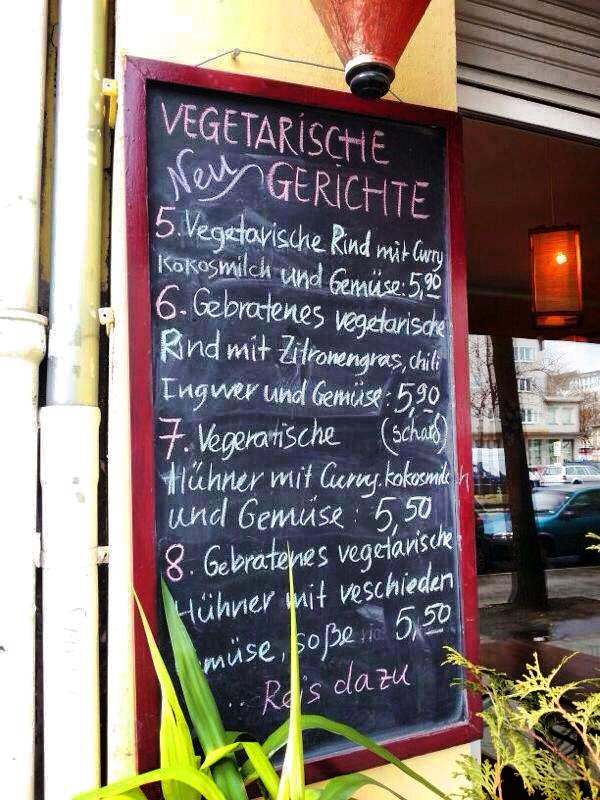 VEGETARISCHE
Neu GERICHTE
5. Vegetarische Rind mit Curry
Kokosmilch und Gemüse: 5,90
6. Gebratenes vegetarische
Rind mit Zitronengras, chili
Ingwer und Gemüse: 5,90
7. Vegeratische (scharf)
Hühner mit Curry, kokosmilch
und Gemüse: 5,50
8. Gebratenes vegetarische
Hühner mit veschieden
müse, soße 5,50
... Reis dazu